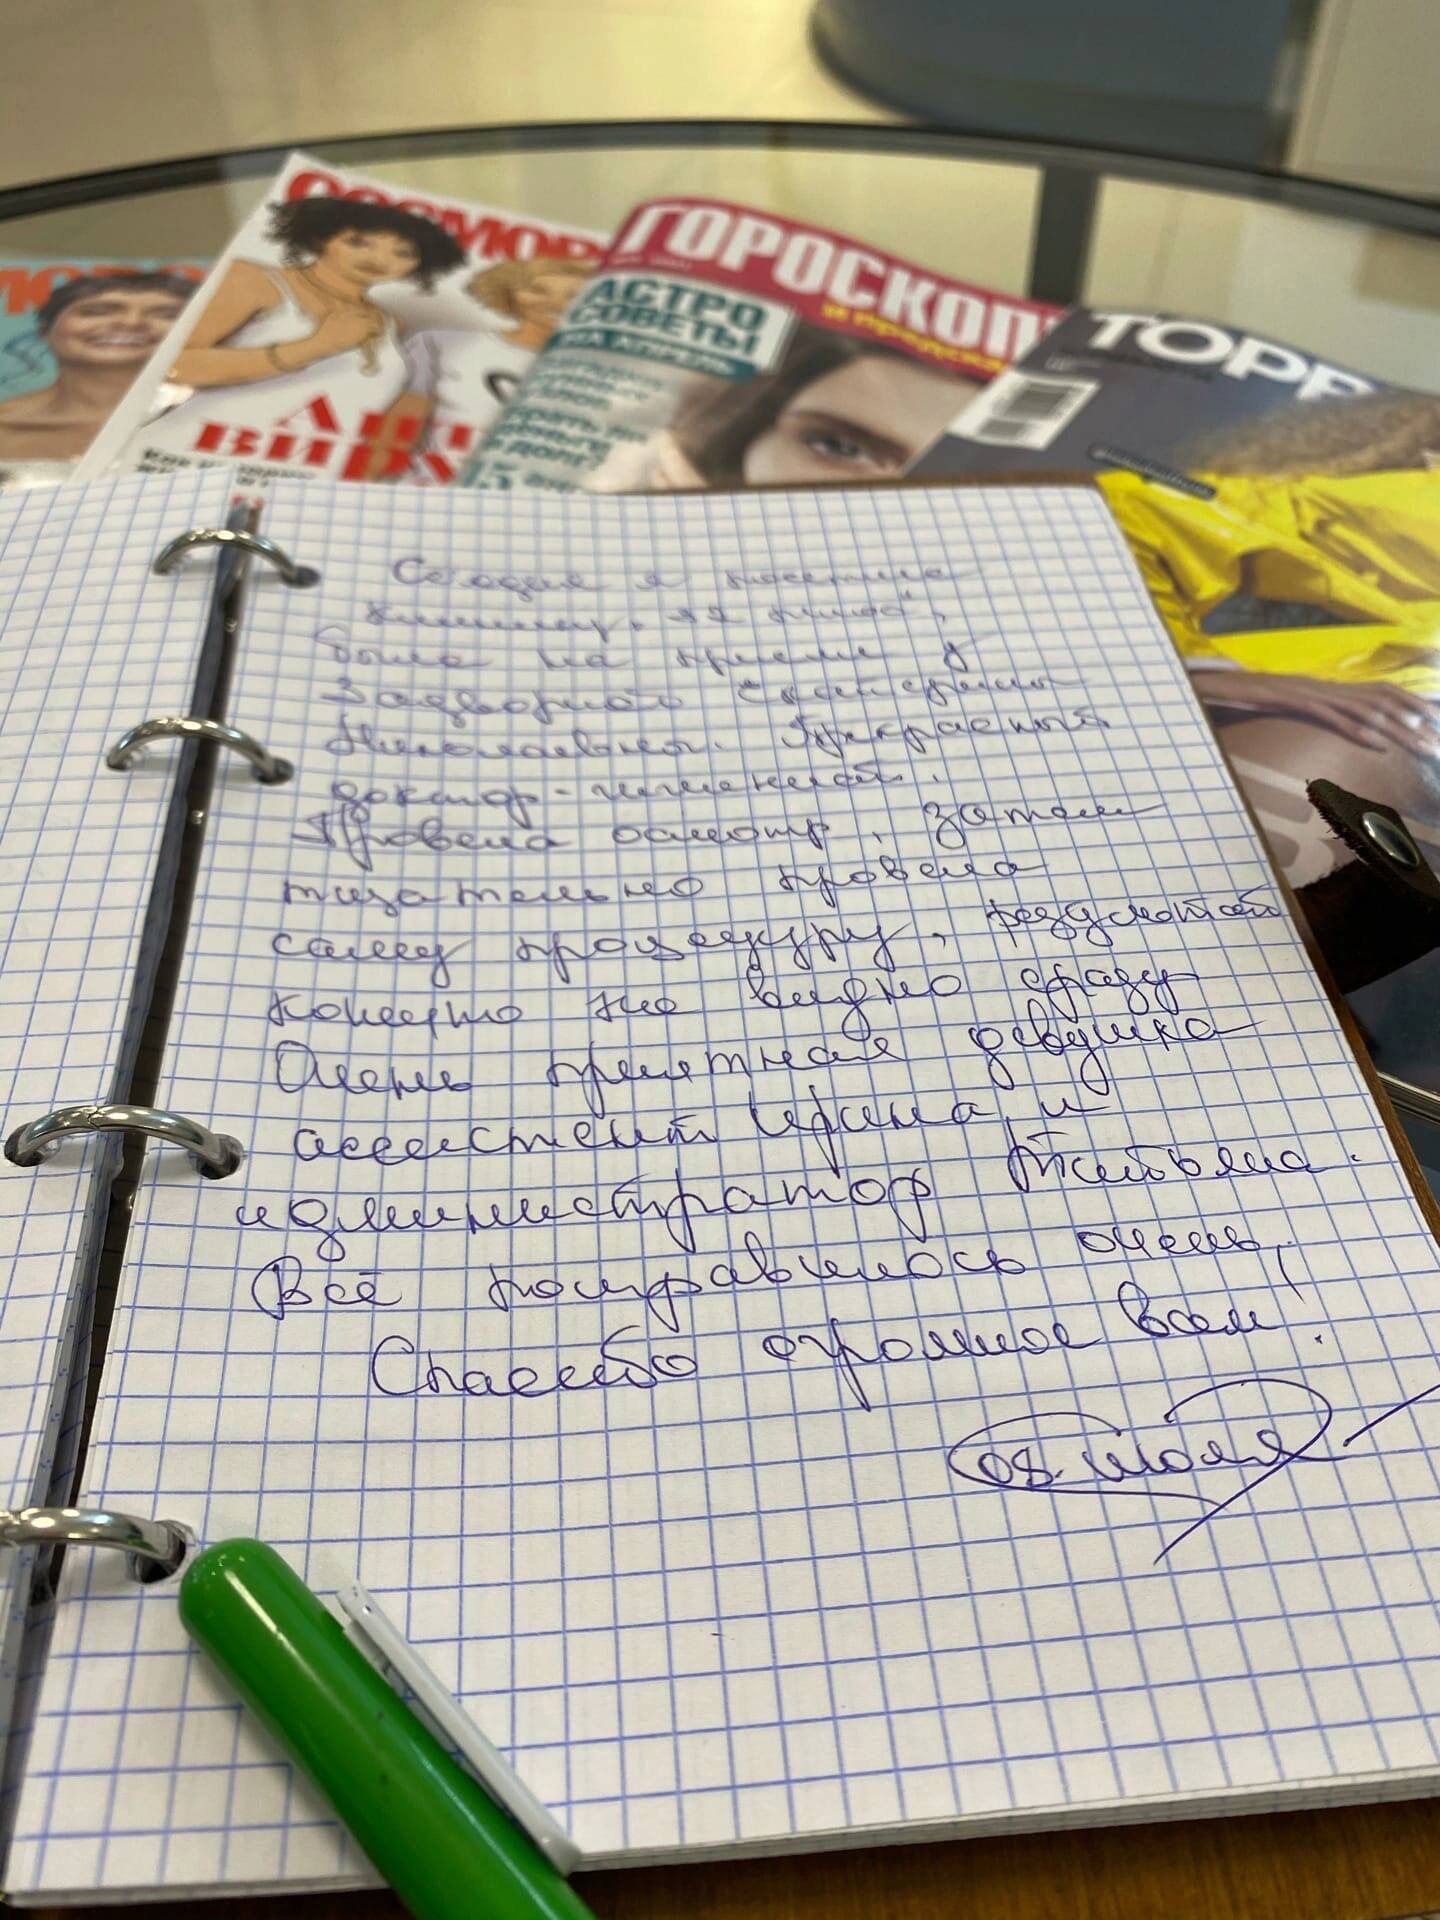 COSMOPO
ГОРОСКОП
АСТРО
СОВЕТЫ
НА АПРЕЛЬ
TOPB
АНТ
ВИРУ
Сегодня я посетила
клинику,
была на приёме у
Задворной Екатерины
Николаевны. Прекрасный
доктор-гигиенист.
Провела осмотр, затем
тщательно провела
саму процедуру, результат
конечно же видно сразу
Очень приятная девушка
ассистент Ирина, и
администратор Татьяна.
Всё понравилось очень,
Спасибо огромное всем!
08. июля